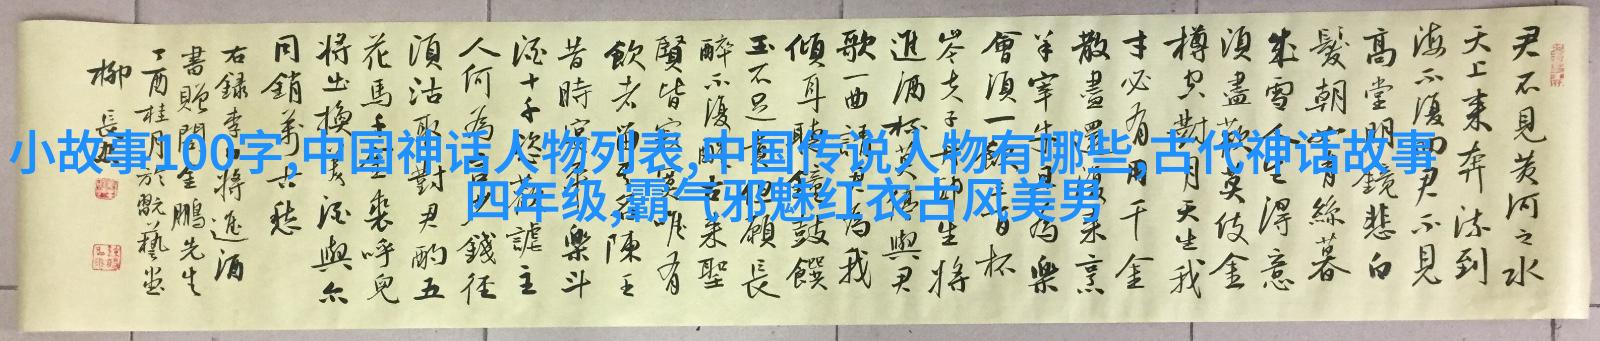 小故事100字,中国神话人物列表,中国传说人物有哪些,古代神话故事
四年级,霸气邪魅红衣古风美男
君不見黃河之水
天上來奔流到
海不復回君不見
高堂明鏡悲白
髮朝如青絲暮
成雪人生得意
須盡歡莫使金
樽空對月天生我
才必有用千金
散盡還復來烹
羊宰牛且為樂
會須一飲三百杯
岑夫子丹邱生將
進酒杯莫停與君
歌一曲請君為我
傾耳聽鐘鼓饌
玉不足貴但願長
醉不復醒古來聖
賢皆寂寞唯有
飲者留其名陳王
昔時宴平樂斗
酒十千恣歡謔主
人何為言少錢徑
須沽取對君酌五
花馬千金裘呼兒
將出換美酒與尔
同銷萬古愁
右錄李白將進酒
書贈金鵬先生
丁酉桂月於翫藝堂
柳長